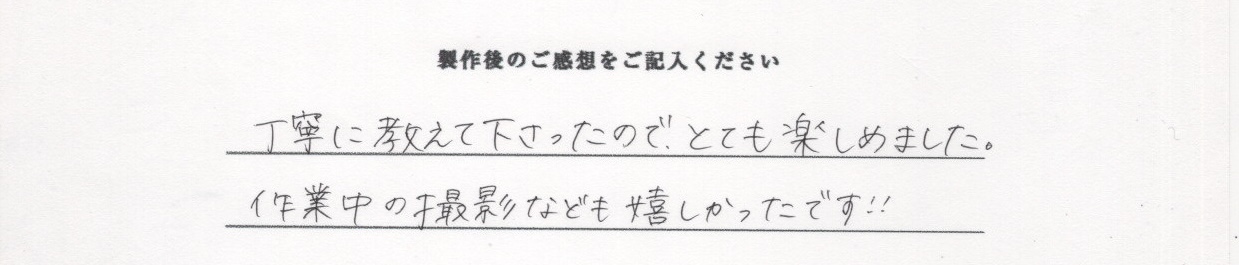 製作後のご感想をご記入ください
丁寧に教えて下さったので、とても楽しめました。
作業中の撮影なども嬉しかったです!!